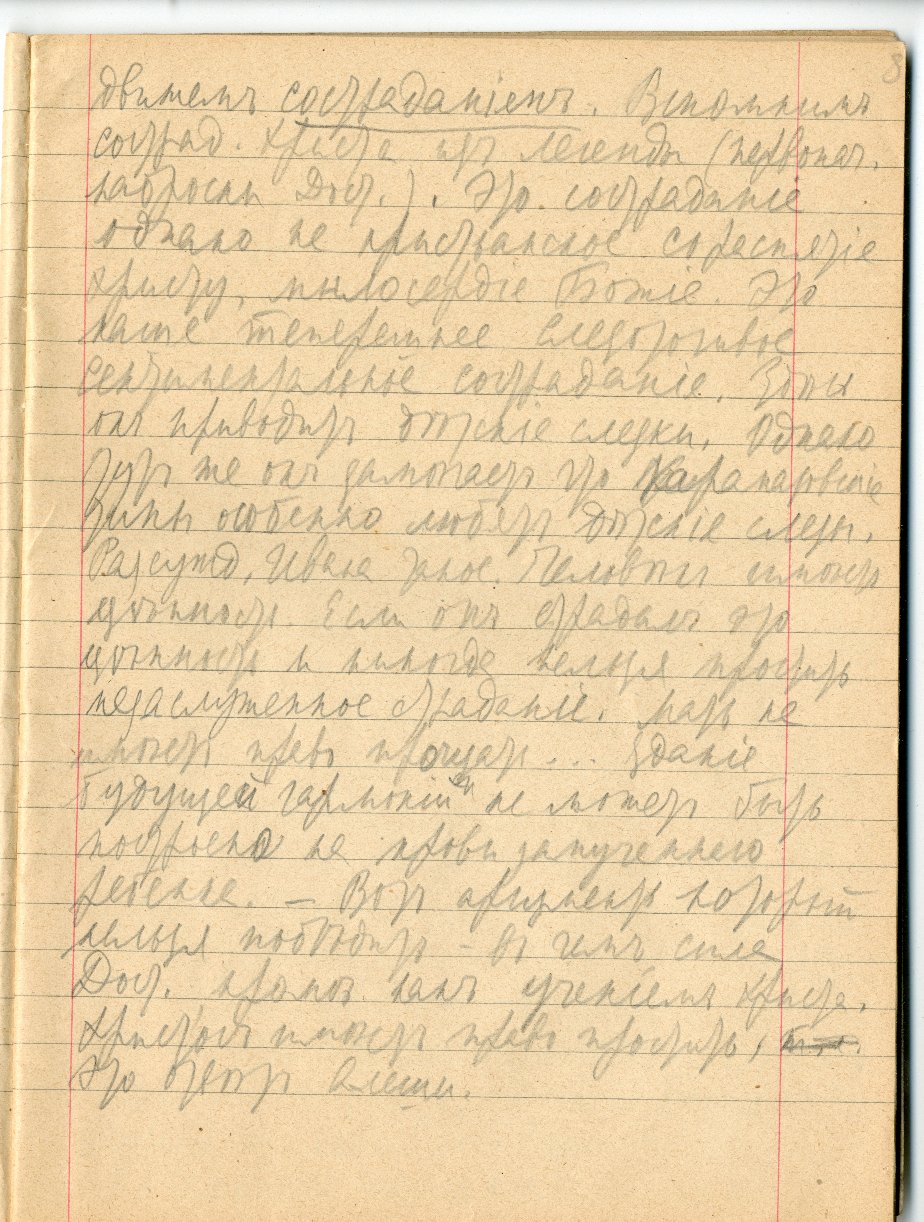 3
движемъ состраданіемъ. Вспомнимъ
сострад. Христа изъ легенды (первонач.
наброски Дост.). Это состраданіе
однако не христьанское сораспятіе
Христу, милосердіе Божіе. Это
наше теперешнее слезоточивое
сентиментальное состраданіе.
онъ приводитъ дѣтскіе слезки. Однако
тутъ же онъ замѣчаетъ что Карамазовскіе
типы особенно любятъ дѣтскіе слезы.
Разсужд. Ивана такое. Человѣкъ имѣетъ
цѣнность. Если онъ страдалъ это
цѣнность и никогда нельзя простить
незаслуженное страданіе. Мать не
имѣетъ правъ прощать... Зданіе
будущей гармоніи не можетъ быть
построено на крови замученнаго
ребенка. – Вотъ аргументъ который
нельзя побѣдить – въ чемъ сила
Дост. кромѣ какъ ученіемъ Христа.
Христосъ имѣетъ правъ простить,
Это отвѣтъ Алеши.